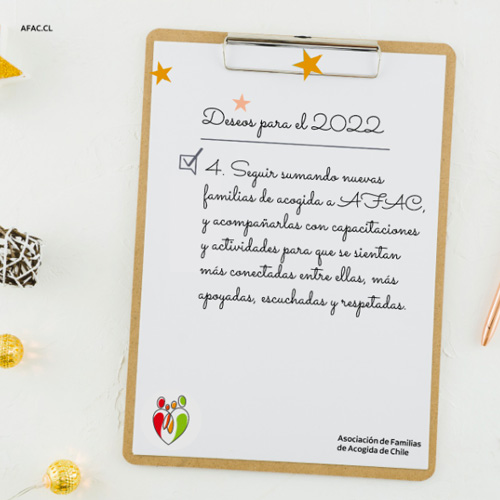 AFAC.CL
Deseos para el 2022
4. Seguir sumando nuevas
familias de acogida a AFAC,
y acompañarlas con capacitaciones
y actividades para que se sientan
más conectadas entre ellas, más
apoyadas, escuchadas y respetadas.
Asociación de Familias
de Acogida de Chile